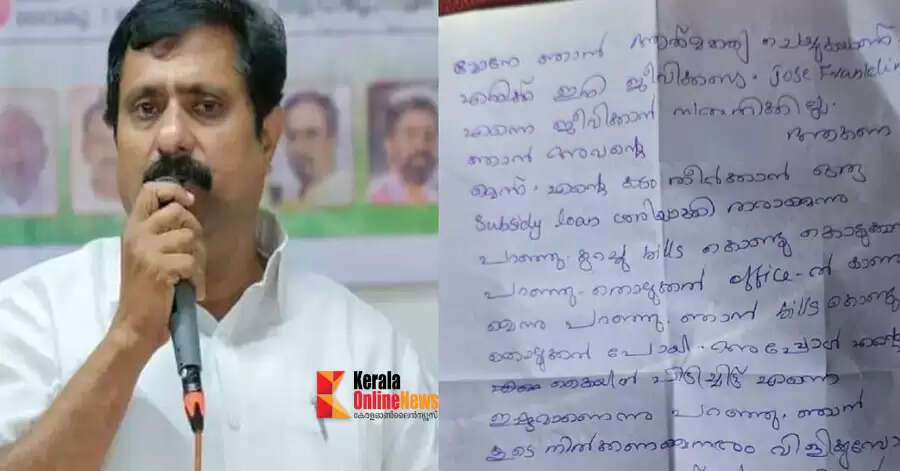 Kerala
OnlineNews
കേരളഓൺലൈൻന്യൂസ്
മോനേ ഞാൻ ആത്മഹത്യ ചെയ്യുകയാണ്
എനിക്ക് ഇനി ജീവിക്കണ്ട. Jose Franklin
എന്നെ ജീവിക്കാൻ സമ്മതിക്കില്ല.
ഞാൻ അവന്റെ
എന്റെ കടം തീർക്കാൻ ഒരു
Subsidy loan ശരിയാക്കി തരാമെന്നു
പറഞ്ഞു. കുറച്ച് bills കൊണ്ടു കൊടുക്കാൻ
പറഞ്ഞു. office-ൽ
മെന്നു പറഞ്ഞു. ഞാൻ bills കൊണ്ടു
കൊടുക്കാൻ പോയി. അപ്പോൾ എന്റെ
കൈയിൽ പിടിച്ചിട്ട് എന്നെ
ഇഷ്ടമാണെന്നു പറഞ്ഞു. ഞാൻ
കൂടെ നിൽക്കണമെന്നും